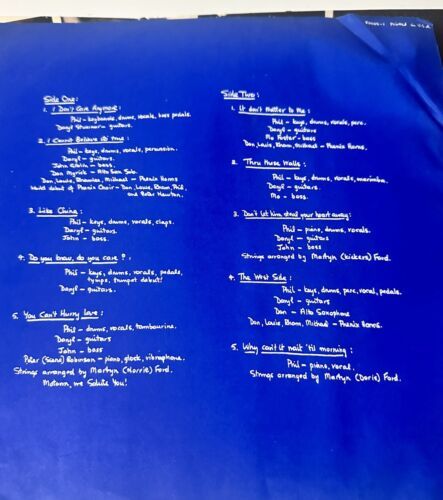 Printed in U.S.A.
Side One:
1. I Don't Care Anymore:
Phil – keyboards, drums, vocals, bass pedals.
Daryl Stuermer – guitars.
2. I Cannot Believe it's True:
Phil – keys, drums, vocals, percussion.
Daryl – guitars.
John Giblin – bass.
Don Myrick – Alto Sax Solo.
Don, Louis, Rhamlee, Michael – Phenix Horns
World debut of Phenix Choir – Don, Louis, Rham, Phil,
and Peter Newton.
3. Like China:
Phil – keys, drums, vocals, claps.
Daryl – guitars.
John – bass.
4. Do you know, do you care?:
Phil – keys, drums, vocals, pedals,
tymps, trumpet debut!
Daryl – guitars.
5. You Can't Hurry Love:
Phil – drums, vocals, tambourine.
Daryl – guitars
John – bass
Peter Robinson – piano, glock, vibraphone.
Strings arranged by Martyn Ford.
Motown, we Salute You!
Side Two:
1. It don't Matter to Me:
Phil – keys, drums, vocals, perc.
Daryl – guitars
Mo Foster – bass
Don, Louis, Rham, Michael – Phenix Horns.
2. Thru these Walls:
Phil – keys, drums, vocals, marimba.
Daryl – guitars.
Mo – bass.
3. Don't let him steal your heart away:
Phil – piano, drums, vocals.
Daryl – guitars
John – bass.
Strings arranged by Martyn Ford.
4. The West Side:
Phil – keys, drums, perc, vocal, pedals.
Daryl – guitars
Don – Alto Saxophone
Don, Louis, Rham, Michael – Phenix Horns.
5. Why can't it wait 'til morning:
Phil – piano, vocal.
Strings arranged by Martyn (Dorie) Ford.